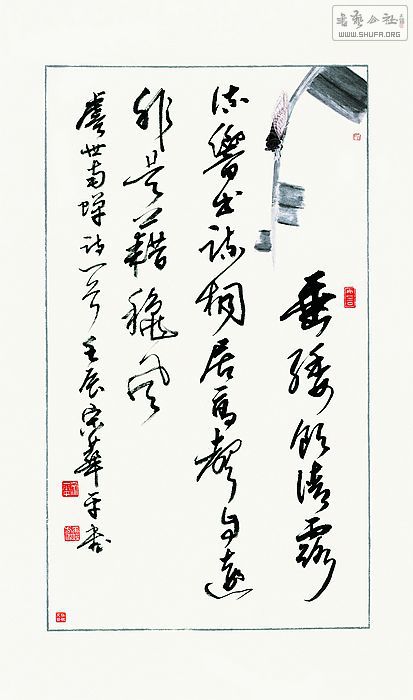 书艺公社
WWW.SHUFA.ORG
垂緌飲清露
流響出疏桐居高聲自遠
非是藉穐風
虞世南蟬詩一首壬辰宋華平書